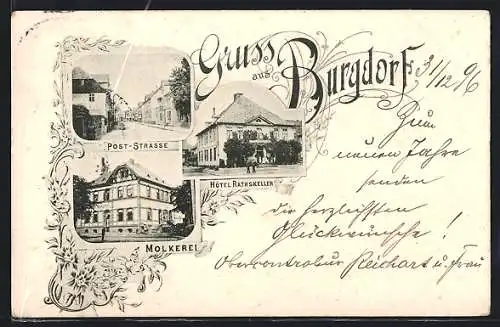 Gruss
aus
Burgdorf.
31/12 96
POST-STRASSE
HÔTEL RATHSKELLER
MOLKEREI
Zum
neuen Jahre
senden
die herzlichsten
Glückwünsche!
Obercontroleur Reichart u. Frau